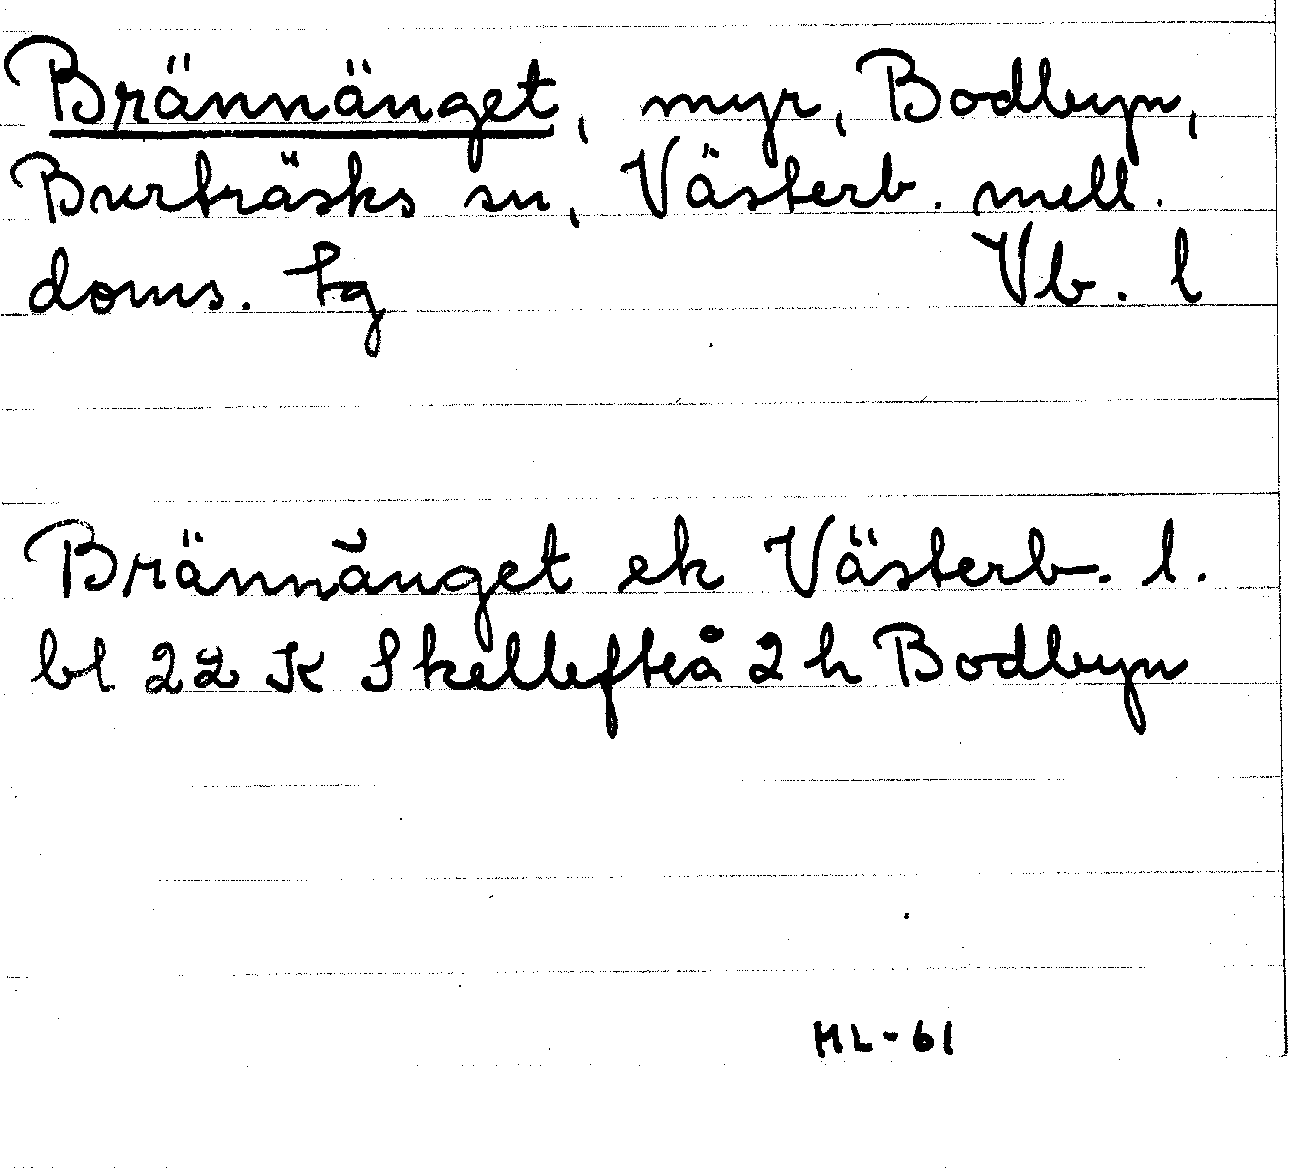 Brännänget, myr, Bodbyn,
Burträsks sn, Västerb. mell.
doms. Tg Vb. l
Brännänget ek Västerb. l.
bl 22 K Skellefteå 2 h Bodbyn
HL-61